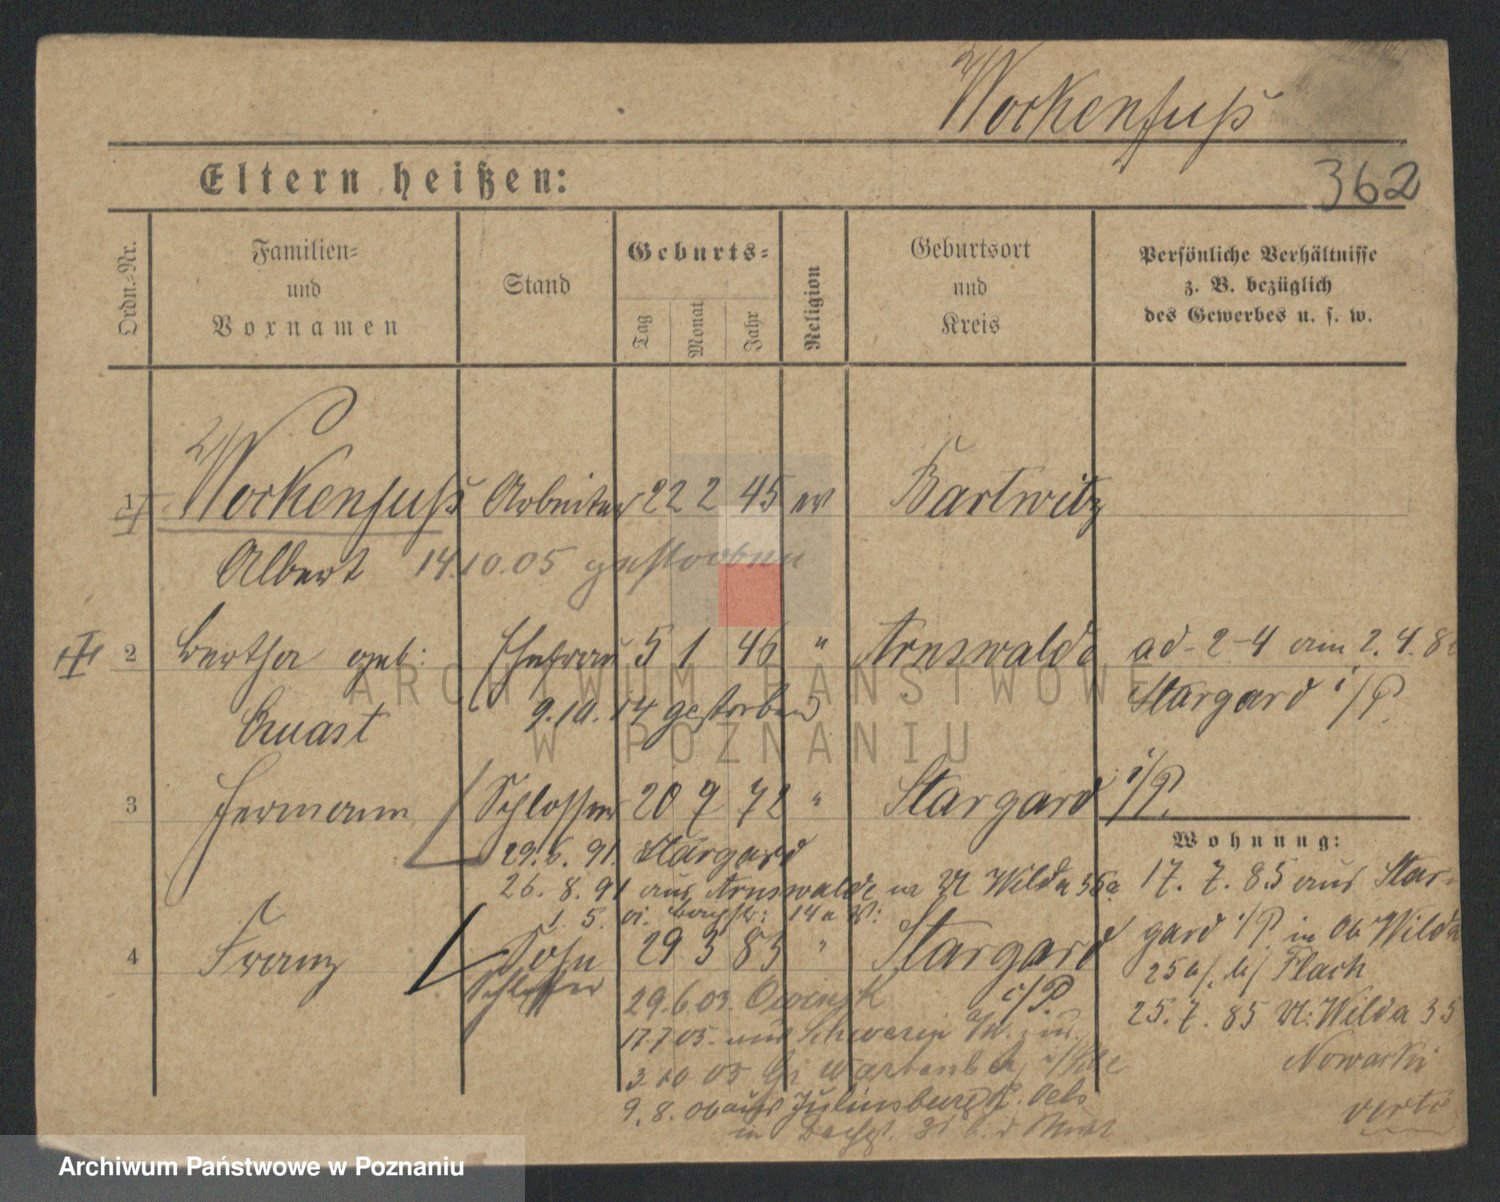 Wockenfuß
362
Eltern heißen:
Ordn.-Nr.
Familien-
und
Vornamen
Stand
Geburts-
Tag
Monat
Jahr
Religion
Geburtsort
und
Kreis
Persönliche Verhältnisse
z. B. bezüglich
des Gewerbes u. s. w.
1 Wockenfuß Arbeiter 22 2 45 ev Bartwitz
Albert 14.10.05 gestorben
2 Bertha geb: Ehefrau 5 1 46 " Arnswalde ad-2-4 am 2.4.8
Quast 9.10.14 gestorben Stargard i/P.
3 Hermann Schlosser 20 7 72 " Stargard i/P.
Wohnung:
29.6.91. Stargard
26.8.91 aus Arnswalde Wilda 35a
17.7.85 aus Star-
gard i/P. in Ob Wilda
4 Franz Sohn 29 3 83 " Stargard i/P.
25a/ b/ Flach
Schlosser
29.6.03. Owinsk
25.7.85 U: Wilda 35
17.7.03. aus Schwerin
Nowacki
3.10.05 Gr Wartenberg
9.8.06 aus Juliusburg K. Oels
verte
ARCHIWUM PAŃSTWOWE
W POZNANIU
Archiwum Państwowe w Poznaniu